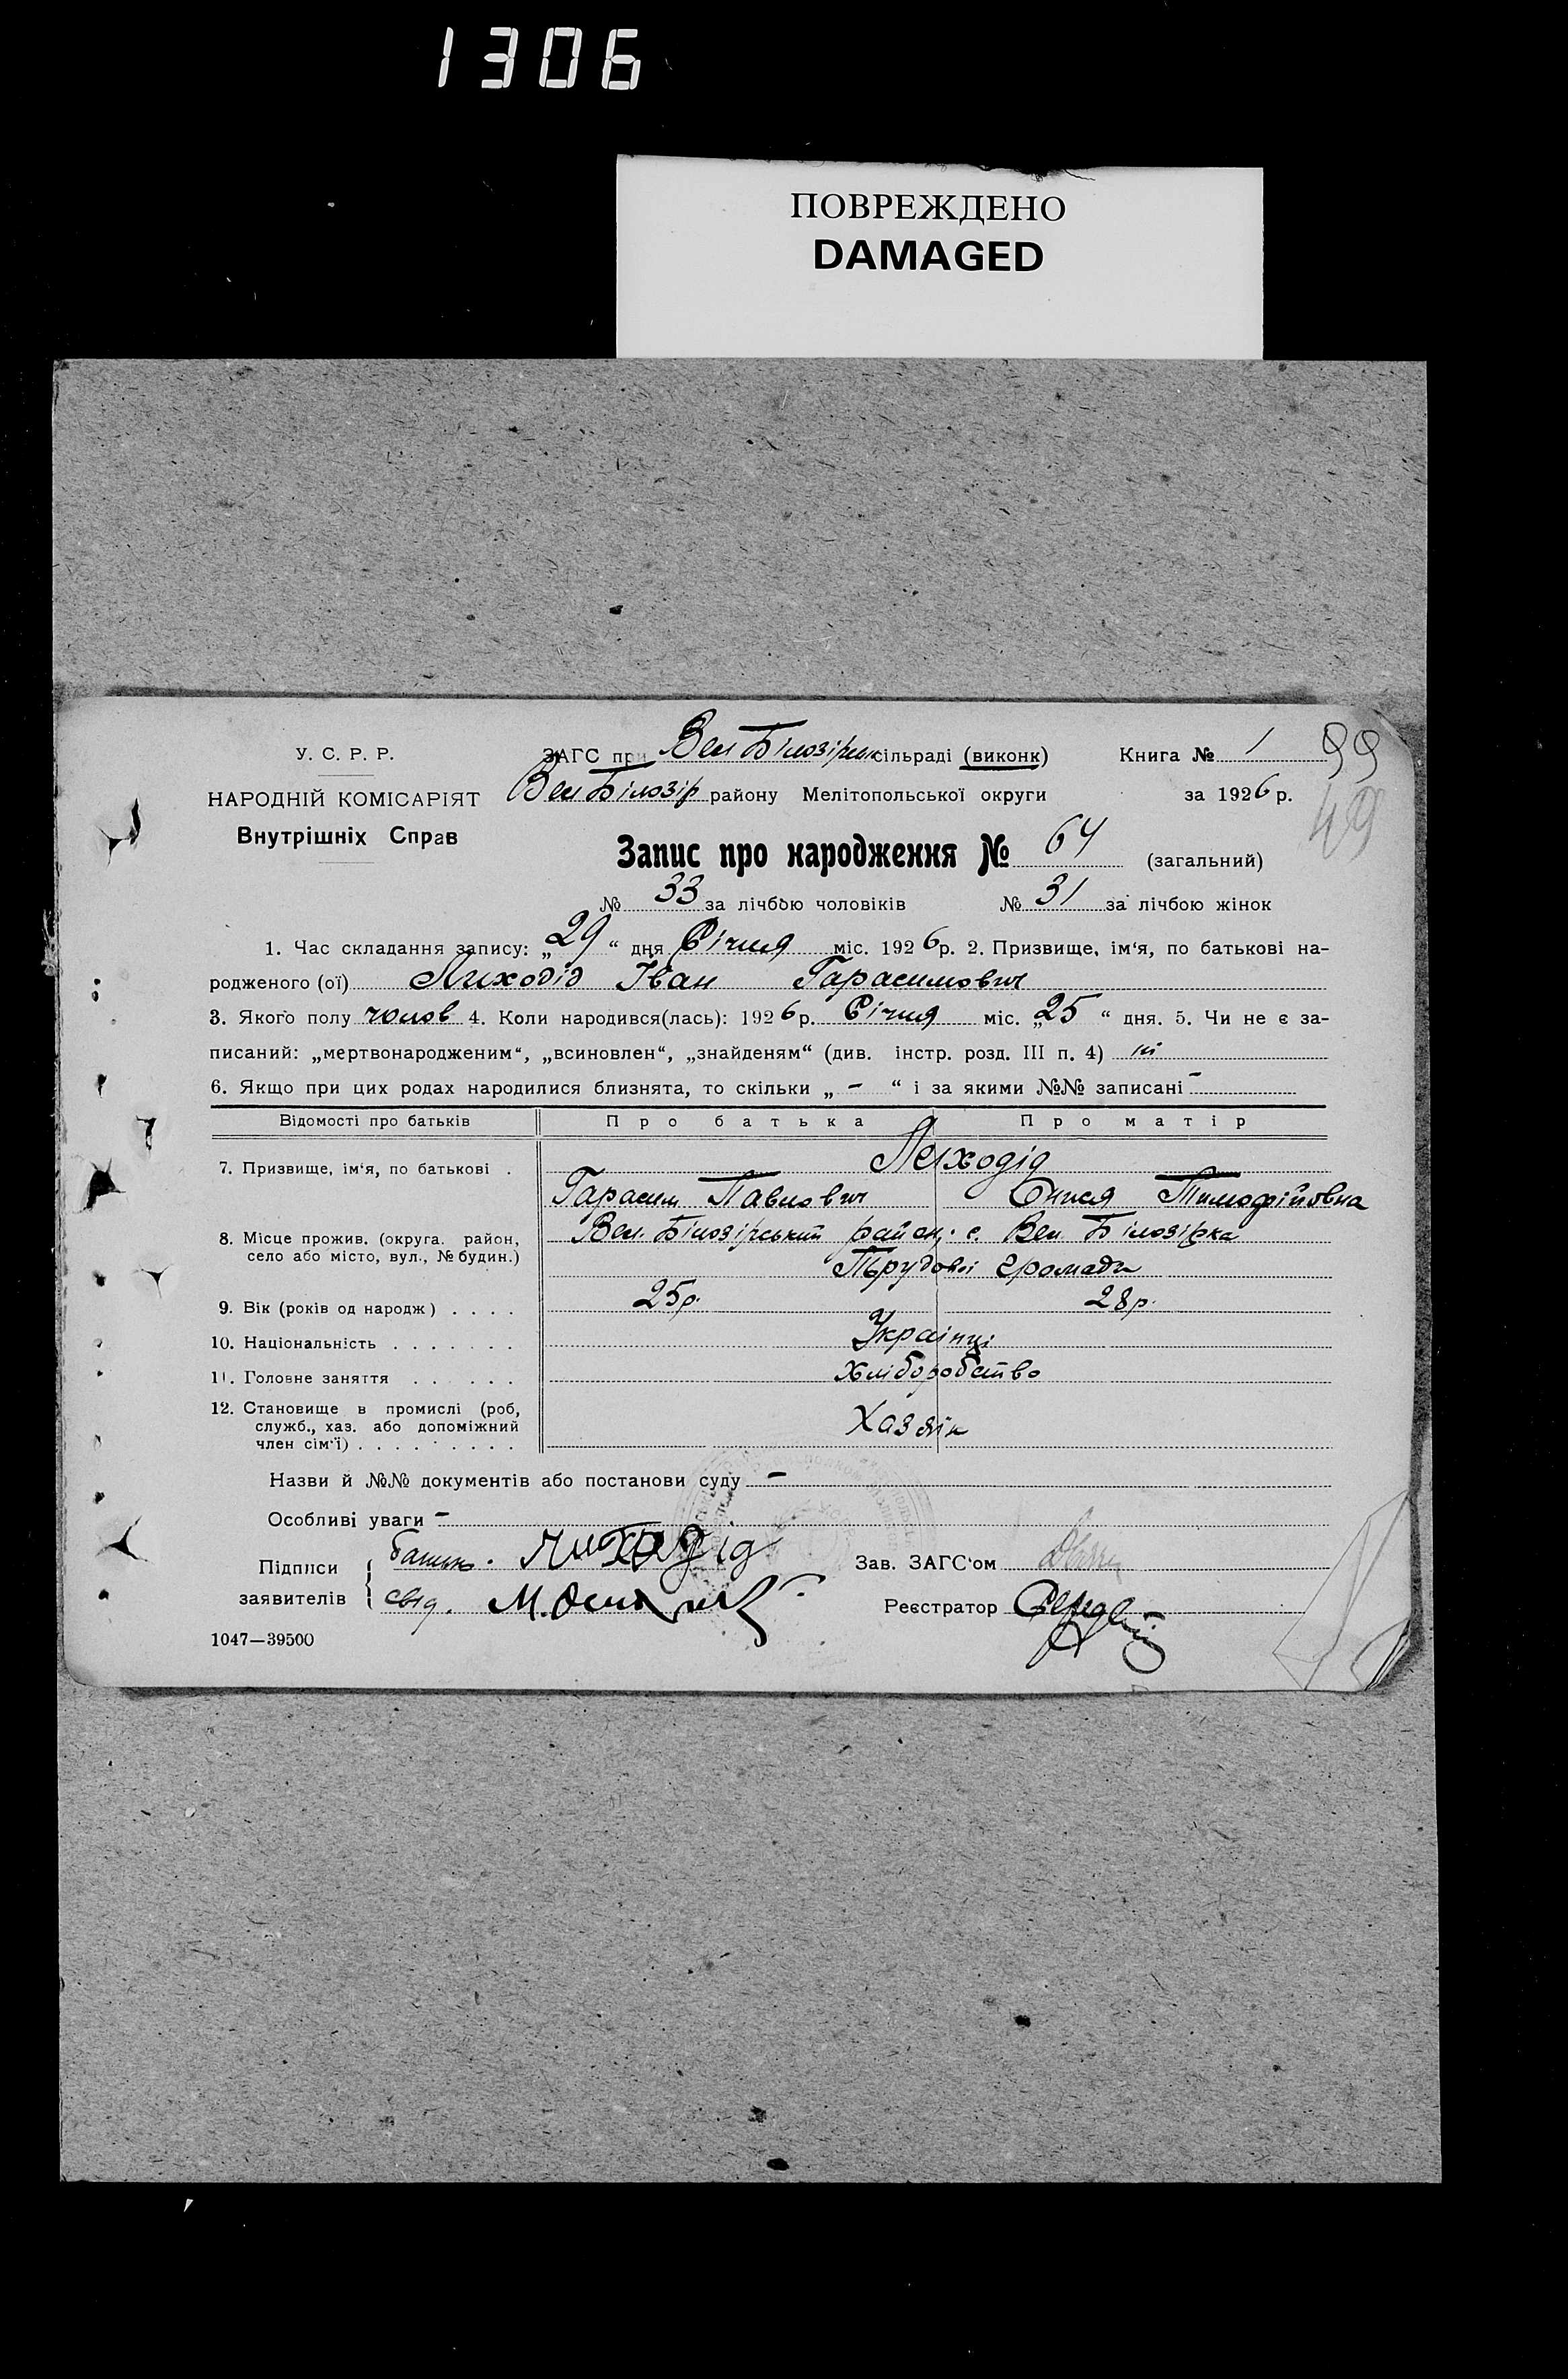 1306
ПОВРЕЖДЕНО
DAMAGED
У. С. Р. Р.
НАРОДНІЙ КОМІСАРІЯТ
Внутрішніх Справ
ЗАГС при Вел Білозірськ сільраді (виконк)
Книга № 1
99
Вел Білозір району Мелітопольської округи
за 1926 р.
49
Запис про народження № 64 (загальний)
№ 33 за лічбою чоловіків № 31 за лічбою жінок
1. Час складання запису: „29“ дня Січня міс. 1926 р. 2. Призвище, ім‘я, по батькові на-
родженого (ої) Лиходід Іван Гарасимович
3. Якого полу чолов 4. Коли народився(лась): 1926 р. Січня міс. „25“ дня. 5. Чи не є за-
писаний: „мертвонародженим“, „всиновлен“, „знайденям“ (див. інстр. розд. III п. 4) ні
6. Якщо при цих родах народилися близнята, то скільки „ - “ і за якими №№ записані -
Відомості про батьків Про батька Про матір
7. Призвище, ім‘я, по батькові . Лиходід
Гарасим Павлович Онися Тимофіївна
8. Місце прожив. (округа. район, село або місто, вул., № будин.) Вел. Білозірський район. с. Вел. Білозірка
Трудової громади
9. Вік (років од народж) . . . . 25 р. 28 р.
10. Національність . . . . . . . Українці
11. Головне заняття . . . . . . Хліборобство
12. Становище в промислі (роб, служб., хаз. або допоміжний член сім‘ї) . . . . . . . . . Хазяїн
Назви й №№ документів або постанови суду -
Особливі уваги -
Підписи заявителів
батько. Лиходід
Зав. ЗАГС‘ом
свід. М.
Реєстратор
1047—39500